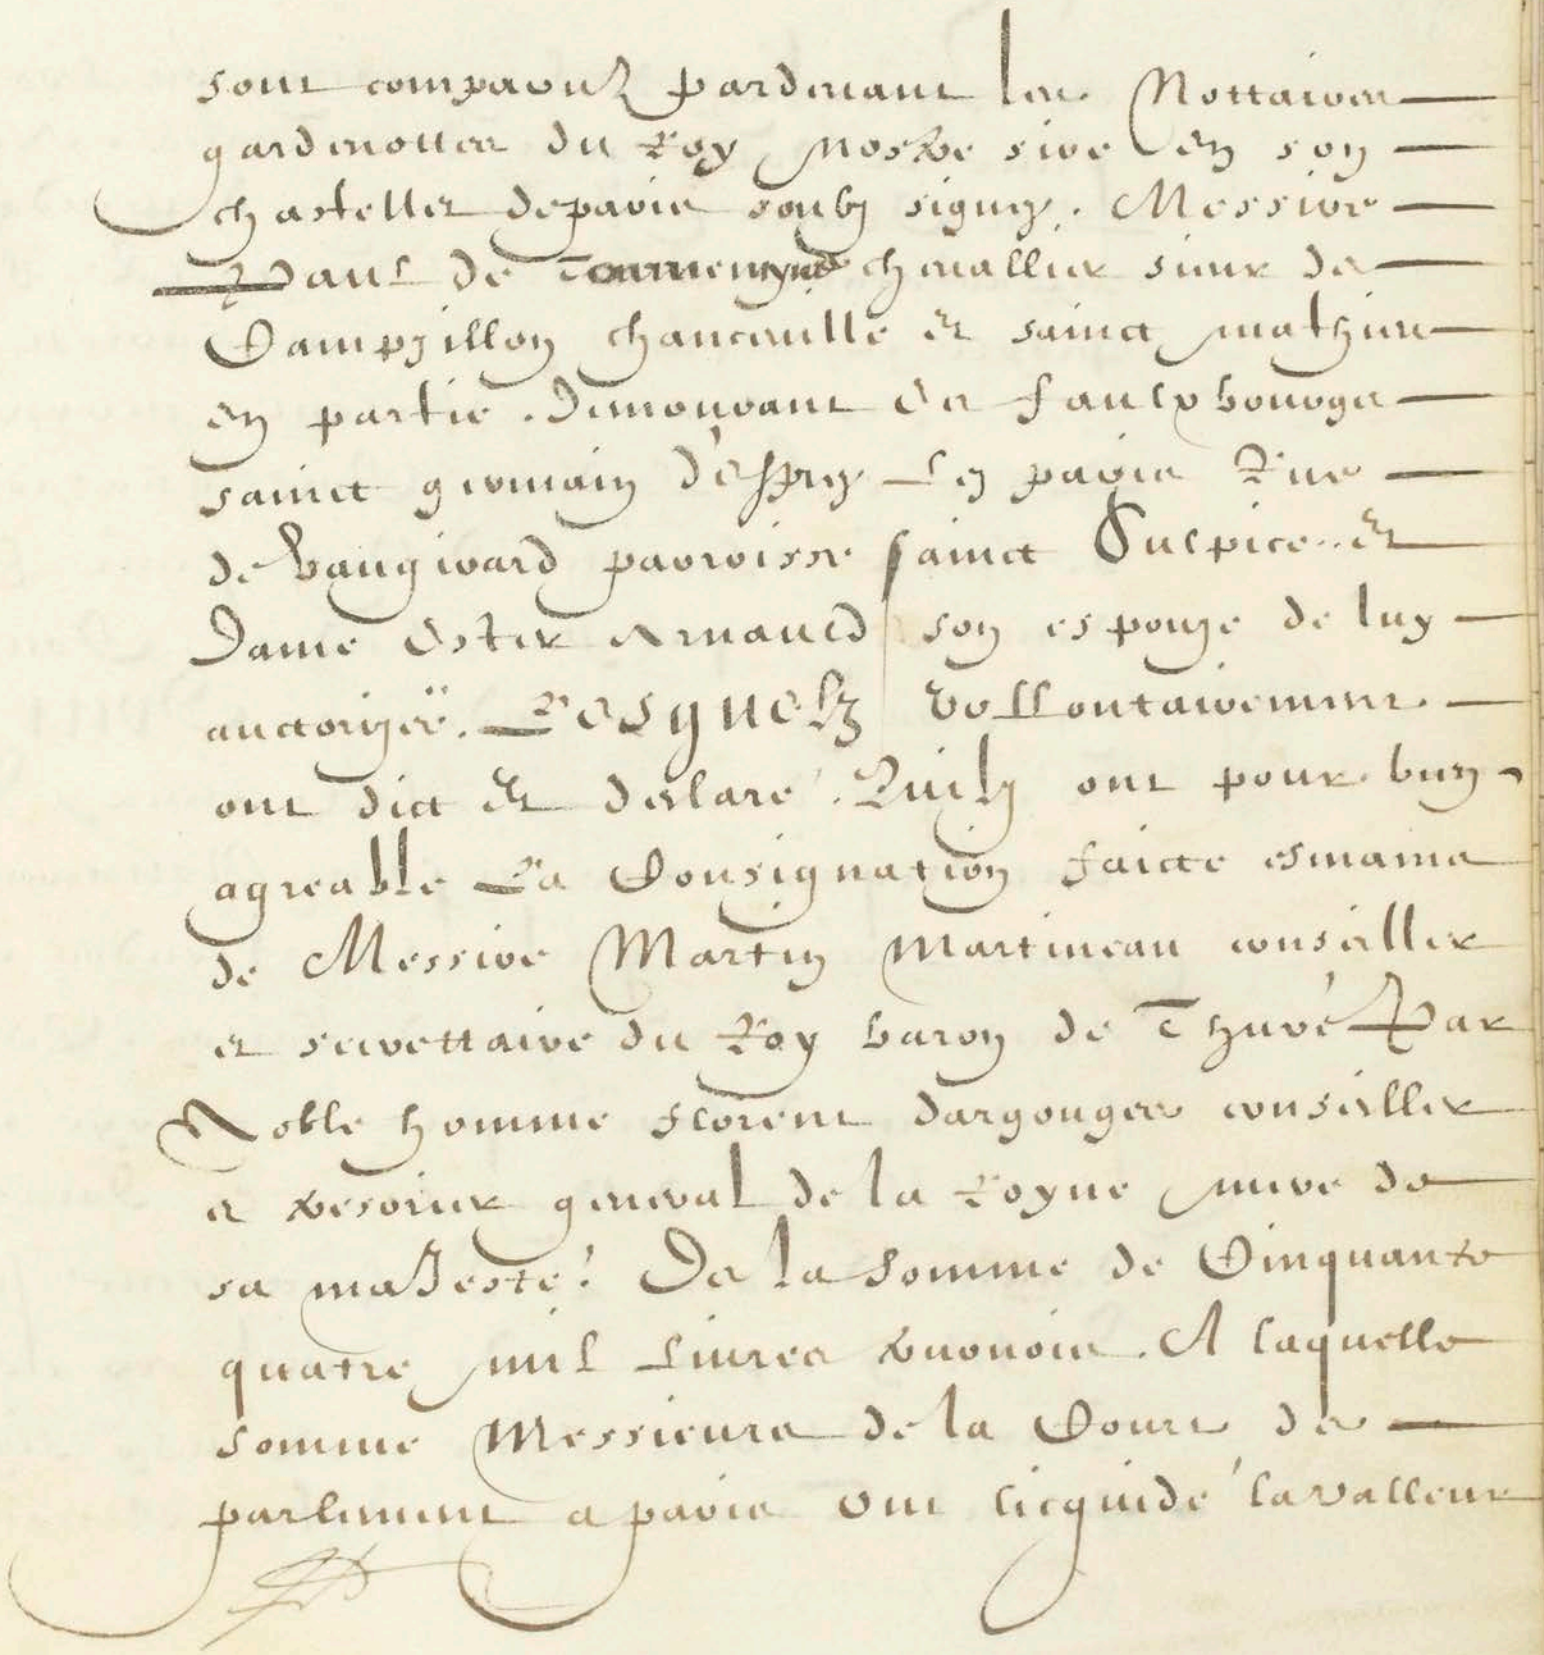 sont comparuz pardevant les Nottaires
gardenottes du Roy nostre sire en son
chastellet de paris soubz signez. Messire
Paul de chevallier sieur de
Dampsillon chanceville et sainct mathieu
en partie. Demourant es faulxbourgs
sainct germain desprez Lez paris Rue
de vaugirard parroisse sainct Sulpice. et
Dame Ester Arnauld son espouze de luy
auctorizée. Lesquelz vollontairement
ont dict et declaré. Quilz ont pour bien
agreable La Consignation faicte esmains
de Messire Martin Martineau conseiller
et secrettaire du Roy baron de Thuré Par
Noble homme florent dargouges conseiller
et tresorier general de la Royne mere de
sa maJesté. De la somme de Cinquante
quatre mil Livres tournois. A laquelle
somme Messieurs de la Court de
parlement a paris ont licquidé la valleur